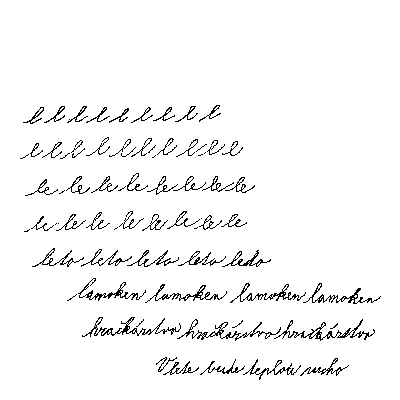 l l l l l l l l l
l l l l l l l l l l
le le le le le le le le
le le le le le le le le
leto leto leto leto leďo
lamoken lamoken lamoken lamoken
hračkárstvo hračkárstvo hračkárstvo
V lete bude teplo